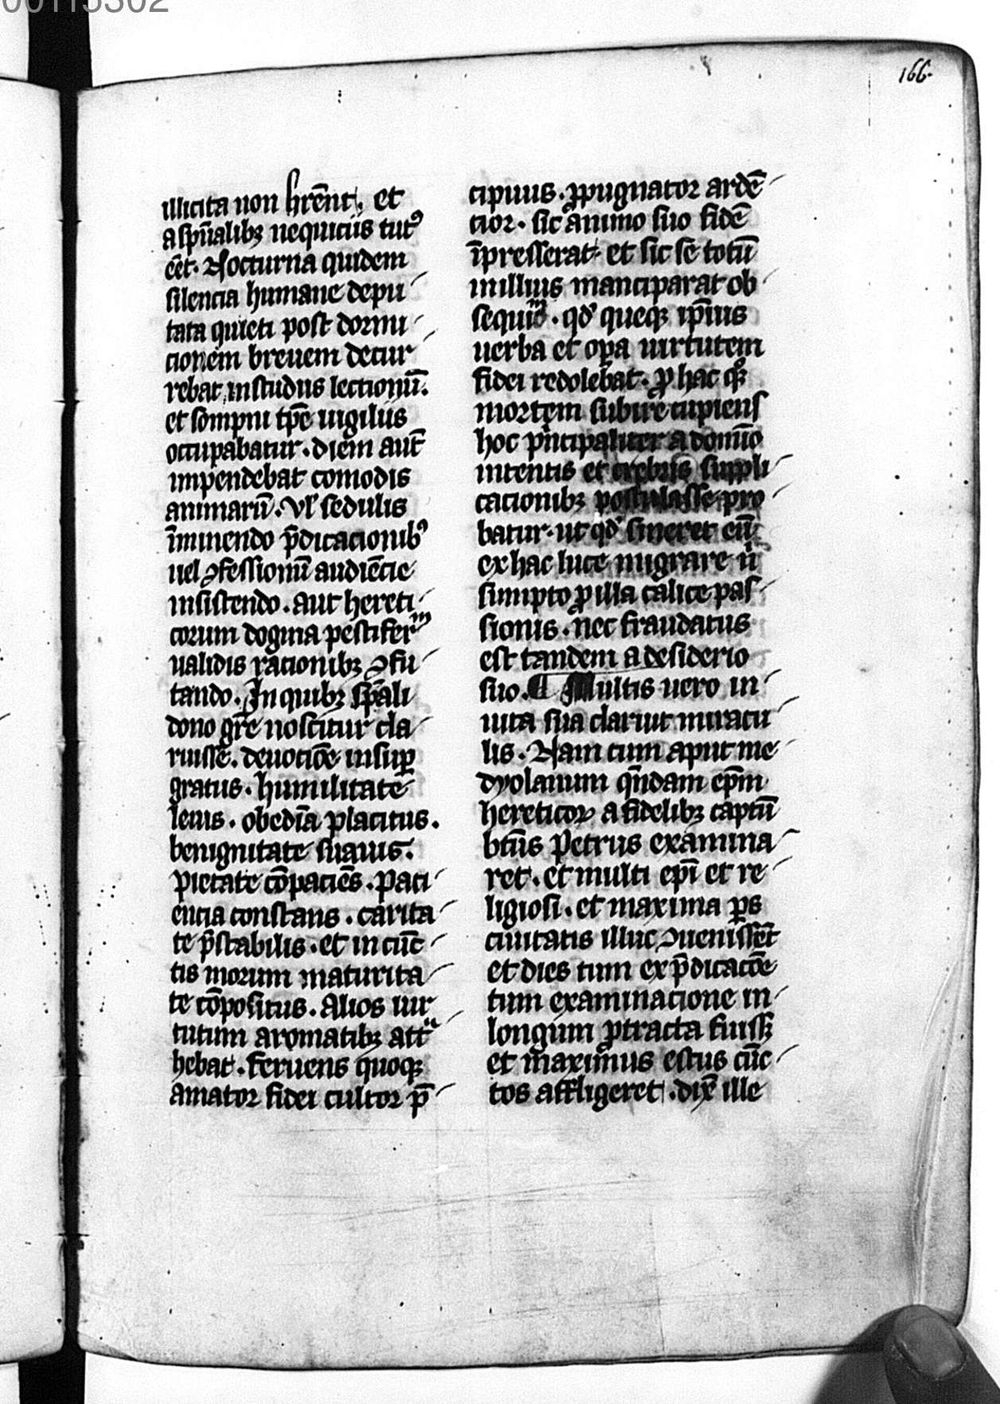 00115302
166.
illicita non hr̃ent, et
a spũalibꝫ nequiciis tutꝰ
eẽt. Nocturna quidem
silencia humane depu
tata quieti post dormi
cionem breuem decur
rebat, in studiis lectionũ.
et sompni tp̃e uigiliis
occupabatur. diem aut̃
impendebat comodis
animarũ. Vl̓ sedulis
ĩminendo p̃dicacionibꝰ
uel ꝯfessionũ audiẽcie
insistendo. aut hereti
corum dogma pestiferᵐ
ualidis racionibꝫ ꝯfu
tando. In quibꝫ sp̃ali
dono gr̃e noscitur cla
ruisse. deuocõe insuꝑ
gratus. humilitate
lenis. obediã placitus.
benignitate suauis.
pietate cõpaciẽs. paci
encia constans. carita
te p̃stabilis. et in cũc
tis morum maturita
te cõpositus. Alios uir
tutum aromatibꝫ attᵃ
hebat. Feruens quoqꝫ
amator fidei cultor p̃
cipuus. ꝓpugnator ardẽ
cior. sic animo suo fidẽ
ĩpresserat. et sic se totũ
in illius manciparat ob
sequiũ. qd̓ queqꝫ ip̃ius
uerba et oꝑa uirtutem
fidei redolebat. ꝓ hac qꝫ
mortem subire cupiens
hoc p̓ncipaliter a domĩo
intentis et crebris suppli
cacionibꝫ postulasse pro
batur. ut qd̓ sineret eũ
ex hac luce migrare ñ
sumpto ꝓ illa calice pas
sionis. nec fraudatus
est tandem a desiderio
suo. ¶ Multis uero in
uita sua claruit miracu
lis. Nam cum aput me
dyolanum qñdam ep̃m
hereticoꝝ a fidelibꝫ captũ
bt̃us Petrus examina
ret. et multi ep̃i et re
ligiosi. et maxima ꝑs
ciuitatis illuc ꝯuenissẽt
et dies tum ex p̃dicacõe
tum examinacione in
longum ꝓtracta fuissꝫ
et maximus estus cũc
tos affligeret. dix̃ ille